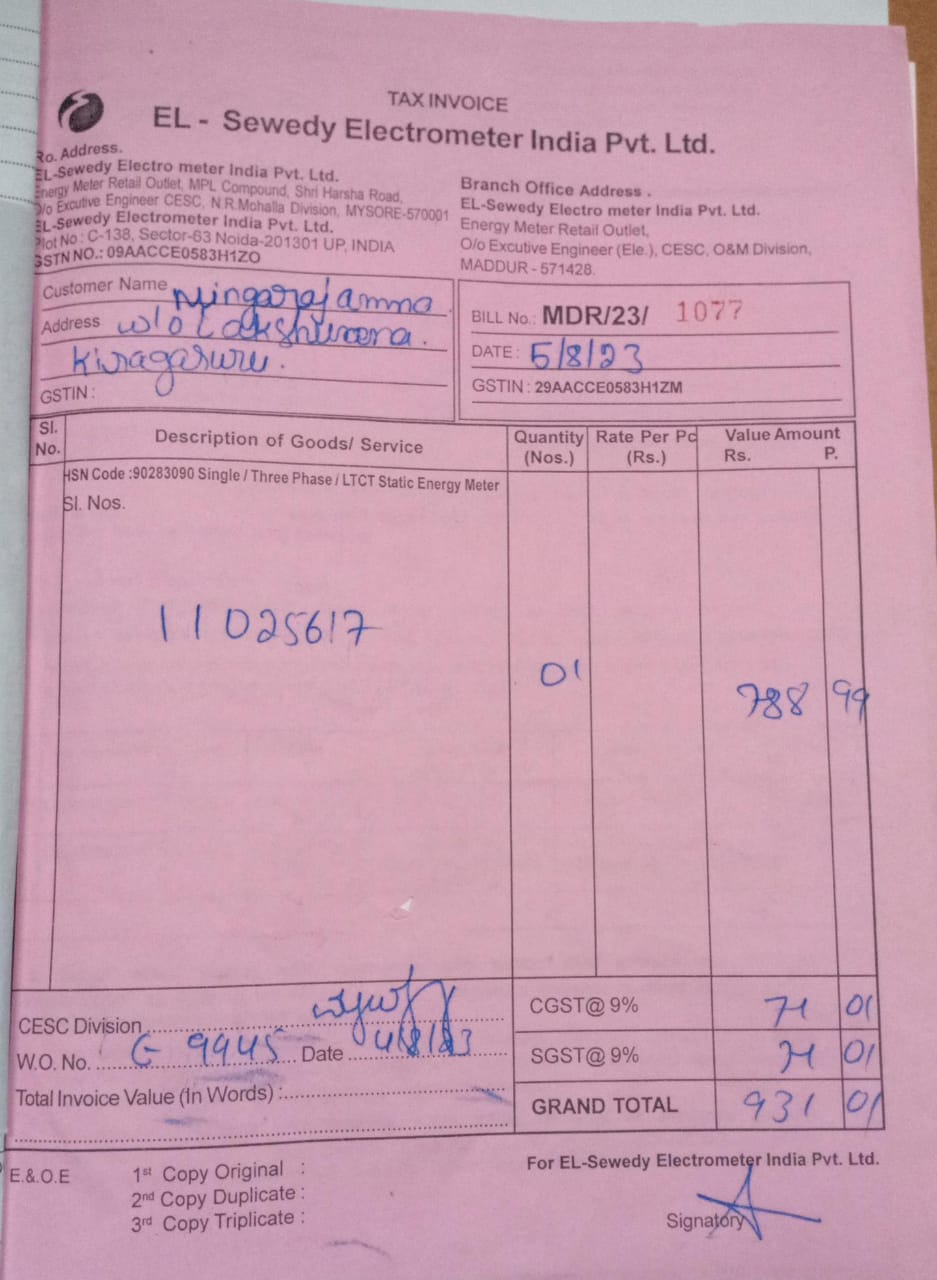 TAX INVOICE
EL - Sewedy Electrometer India Pvt. Ltd.
Ro. Address.
EL-Sewedy Electro meter India Pvt. Ltd.
Energy Meter Retail Outlet, MPL Compound, Shri Harsha Road,
O/o Excutive Engineer CESC, N.R.Mohalla Division, MYSORE-570001
EL-Sewedy Electrometer India Pvt. Ltd.
Plot No : C-138, Sector-63 Noida-201301 UP, INDIA
GSTN NO.: 09AACCE0583H1ZO
Branch Office Address .
EL-Sewedy Electro meter India Pvt. Ltd.
Energy Meter Retail Outlet,
O/o Excutive Engineer (Ele.), CESC, O&M Division,
MADDUR - 571428.
Customer Name Ningarajamma
Address w/o
Kiragasuru.
GSTIN :
BILL No.: MDR/23/ 1077
DATE : 5/8/23
GSTIN : 29AACCE0583H1ZM
Sl. No. Description of Goods/ Service Quantity (Nos.) Rate Per Pc (Rs.) Value Amount Rs. P.
HSN Code :90283090 Single / Three Phase / LTCT Static Energy Meter
Sl. Nos.
11025617 01 788 99
CESC Division
CGST@ 9% 71 01
W.O. No. G 9945 Date 4/8/23
SGST@ 9% 71 01
Total Invoice Value (In Words) :
GRAND TOTAL 931 01
E.&.O.E
1st Copy Original :
2nd Copy Duplicate :
3rd Copy Triplicate :
For EL-Sewedy Electrometer India Pvt. Ltd.
Signatory